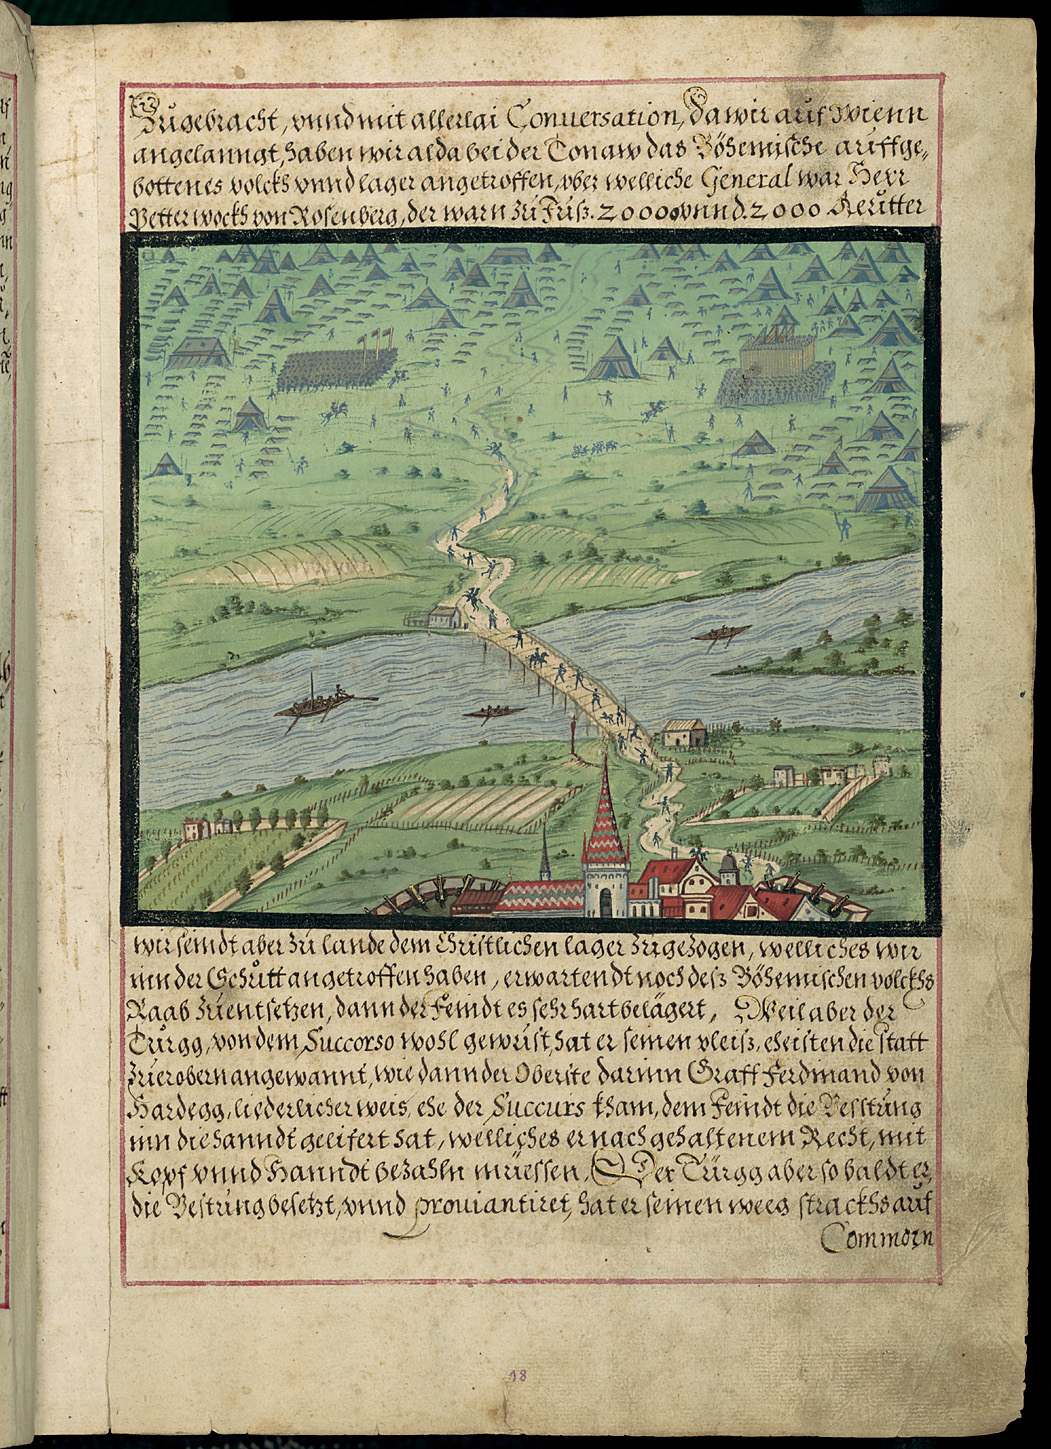 Zugebracht, vnnd mit allerlai Conuersation, Da wir auf Wienn
angelanngt, haben wir alda bei der Tonaw das Böhemische auffge,,
bottenes volckh vnnd lager angetroffen, vber welliche General war Herr
Petter wockh von Rosenberg, der warn zu Fuß. 20000 vnnd. 2000 Reütter
wir seindt aber zu lande dem Christlichen lager zugezogen, welliches wir
inn der Schütt angetroffen haben, erwartendt noch deß Böhemischen volckhs
Raab zu entsetzen, dann der Feindt es sehr hart belägert, Weil aber der
Türgg, von dem Succorso wohl gewust, hat er seinen vleiß, eheisten die statt
zu erobern angewannt, wie dann der Oberste darinn Graff Ferdinand von
Hardegg, liederlicher weis, ehe der Succurs kham, dem Feindt die Vesstung
inn die hanndt geliefert hat, welliches er nach gehaltenem Recht, mit
Kopf vnnd Hanndt bezahln müessen, Der Türgg aber so baldt er,
die Vestung besetzt, vnnd prouiantiret, hat er seinen weeg strackhs auf
Commorn
48